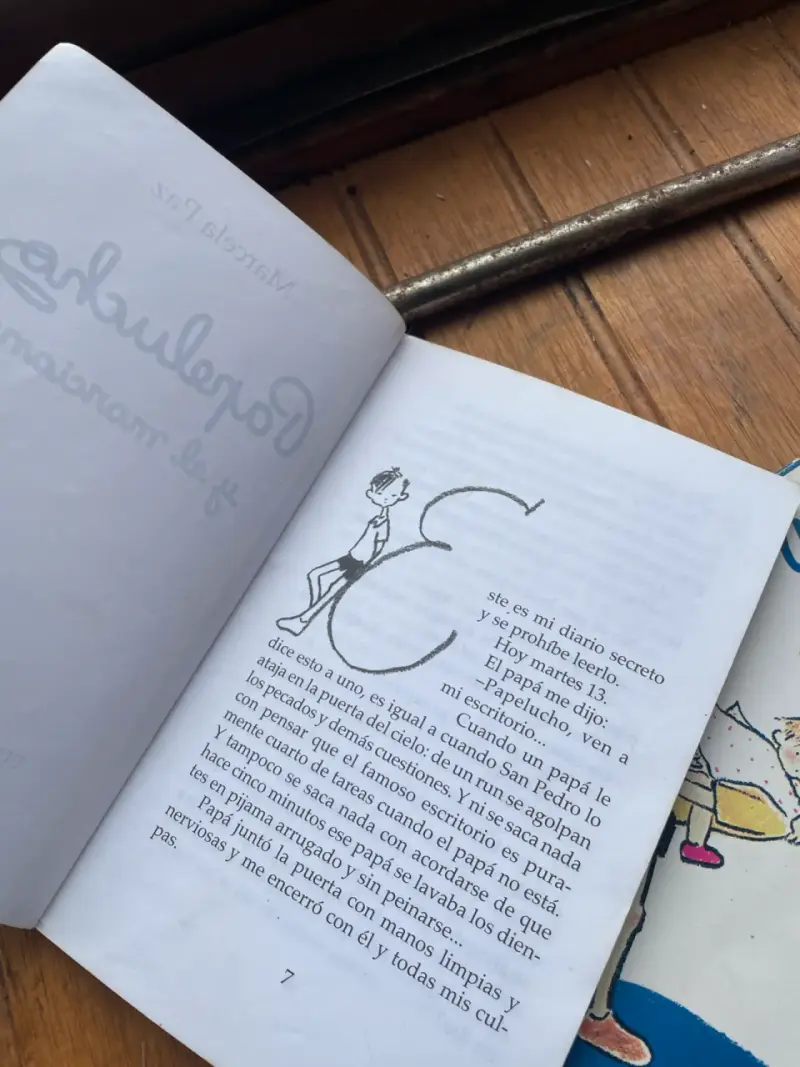 Marcela Paz
Papelucho
y el marciano
Este es mi diario secreto
y se prohíbe leerlo.
Hoy martes 13.
El papá me dijo:
–Papelucho, ven a
mi escritorio...
Cuando un papá le
dice esto a uno, es igual a cuando San Pedro lo
ataja en la puerta del cielo: de un run se agolpan
los pecados y demás cuestiones. Y ni se saca nada
con pensar que el famoso escritorio es pura-
mente cuarto de tareas cuando el papá no está.
Y tampoco se saca nada con acordarse de que
hace cinco minutos ese papá se lavaba los dien-
tes en pijama arrugado y sin peinarse...
Papá juntó la puerta con manos limpias y
nerviosas y me encerró con él y todas mis cul-
pas.
7